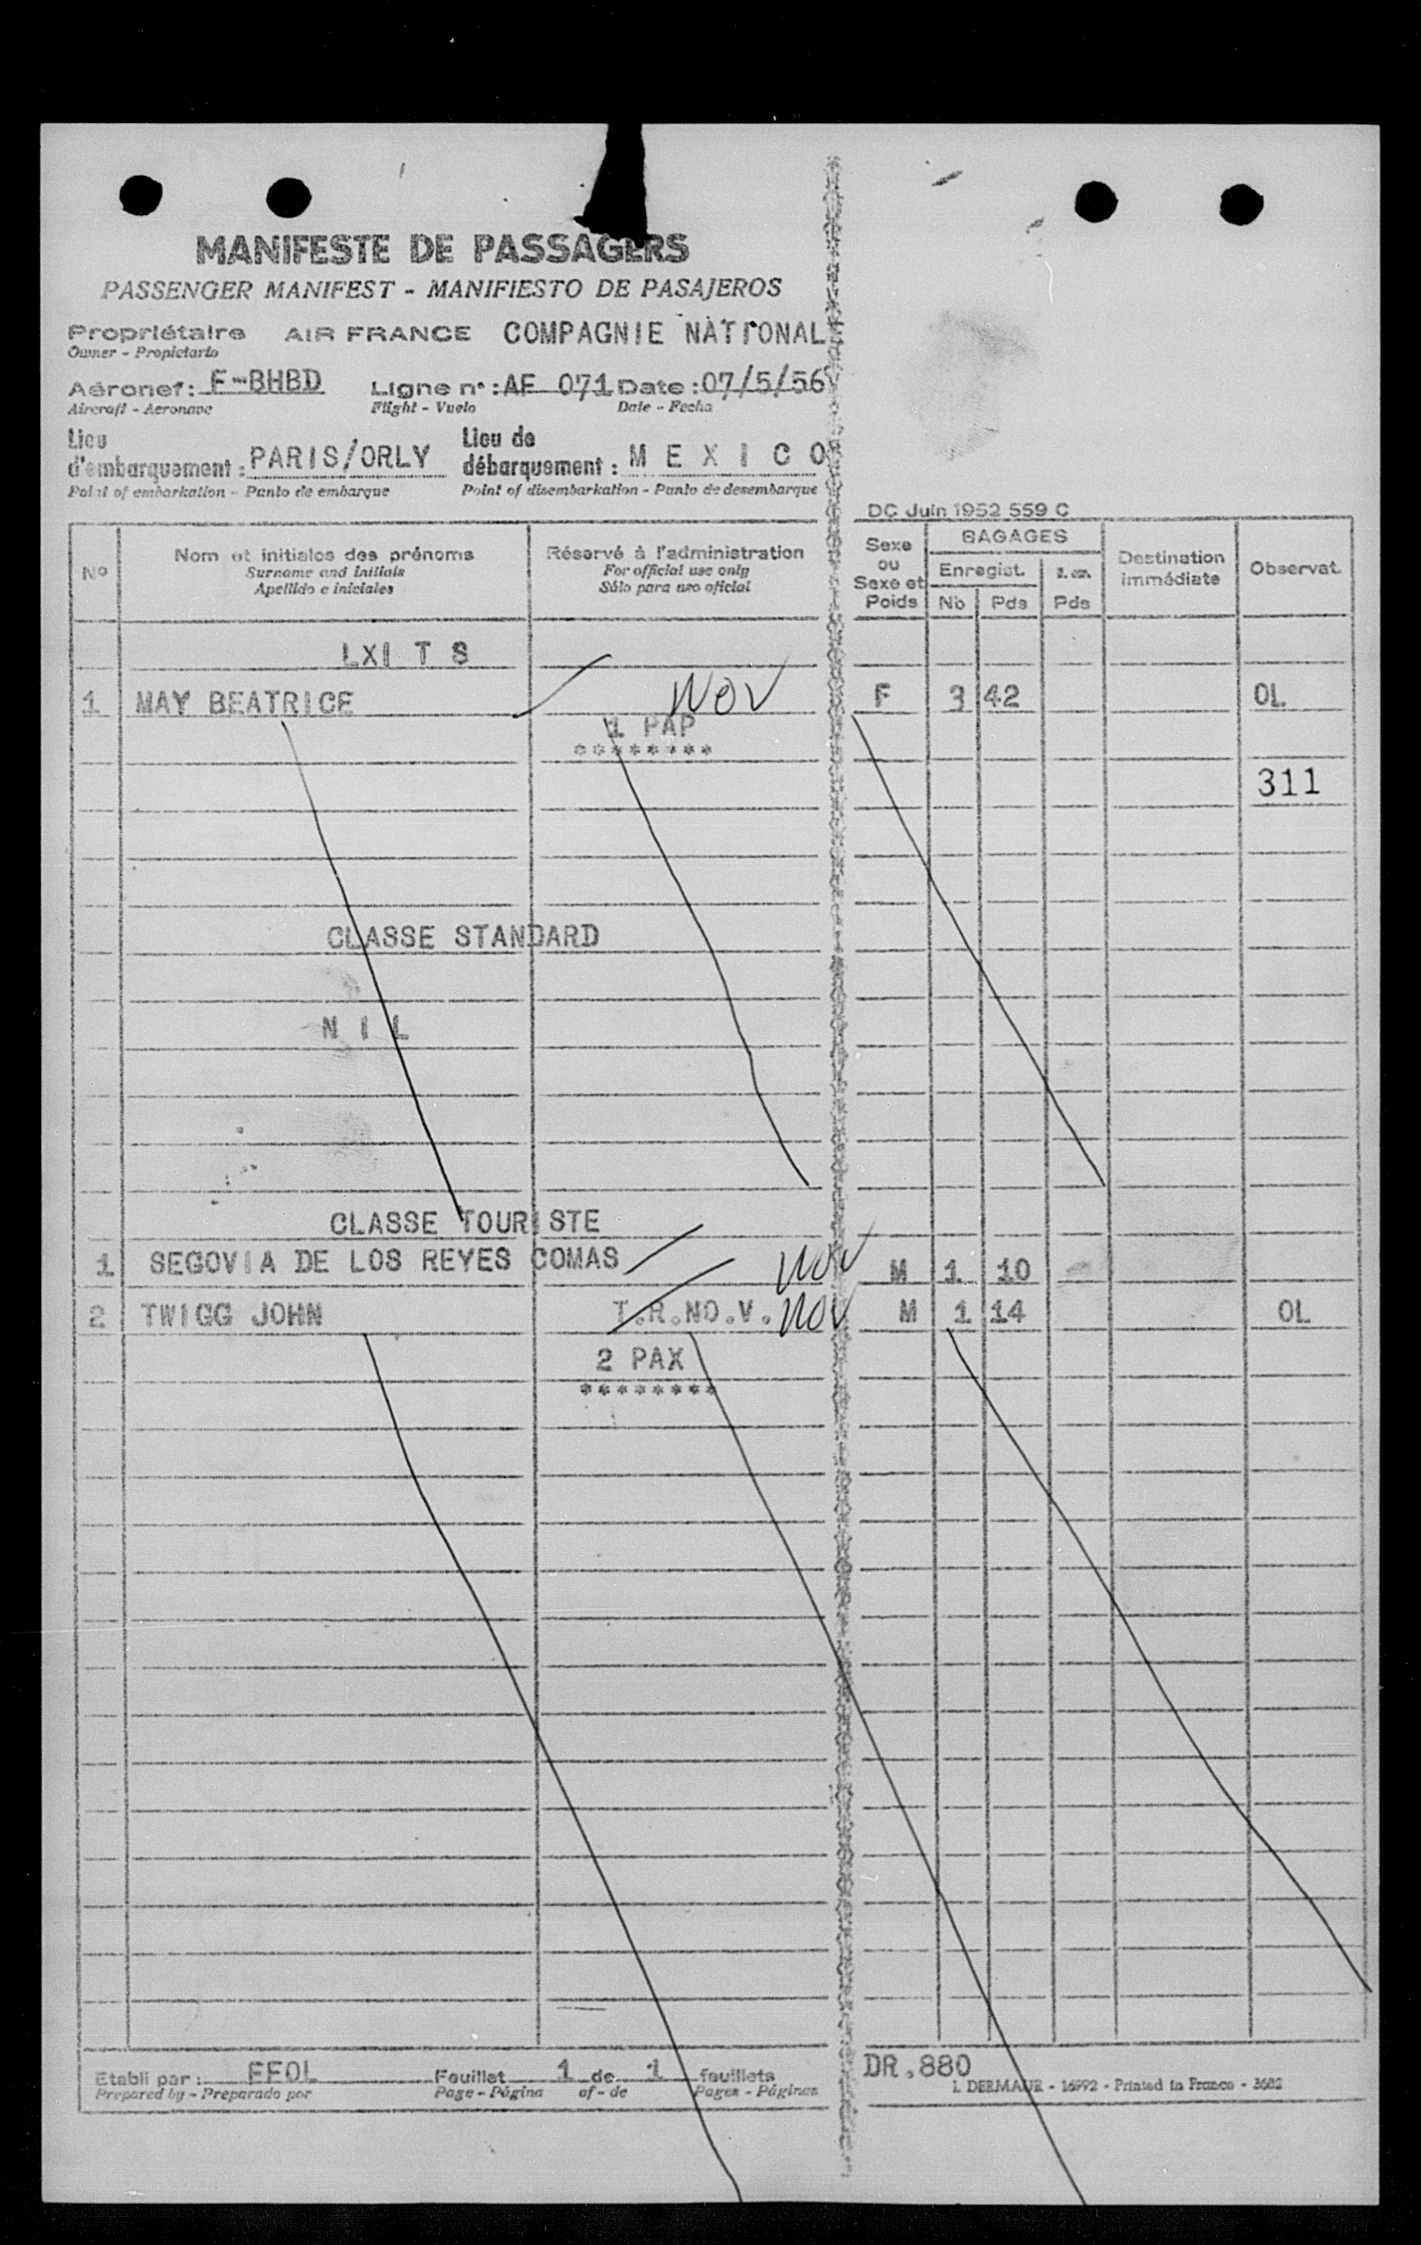 MANIFESTE DE PASSAGERS
PASSENGER MANIFEST - MANIFIESTO DE PASAJEROS
Propriétaire AIR FRANCE COMPAGNIE NATIONALE
Owner - Propietario
Aéronef: F-BHBD Ligne n°: AF 071 Date: 07/5/56
Aircraft - Aeronave Flight - Vuelo Date - Fecha
Lieu d'embarquement: PARIS/ORLY Lieu de débarquement: M E X I C O
Point of embarkation - Punto de embarque Point of disembarkation - Punto de desembarque
DC Juin 1952 559 C
Nº Nom et initiales des prénoms Réservé à l'administration Sexe ou Sexe et Poids BAGAGES Destination immédiate Observat.
Surname and initials For official use only Enregist.
Apellido e iniciales Sólo para uso oficial Nb Pds Pds
LXI T S
1 MAY BEATRICE NOV F 3 42 OL
1 PAP
********
311
CLASSE STANDARD
N I L
CLASSE TOURISTE
1 SEGOVIA DE LOS REYES COMAS NOV M 1 10
2 TWIGG JOHN T.R.NO.V. NOV M 1 14 OL
2 PAX
********
Etabli par: FFOL Feuillet 1 de 1 feuillets DR.880
Prepared by - Preparado por Page - Página of - de Pages - Páginas
I. DERMAUR - 16992 - Printed in France - 3682